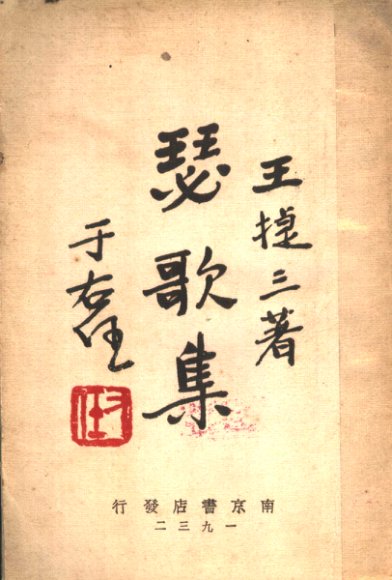 王捷三著
瑟歌集
于右任
右任
南京書店發行
一九三二